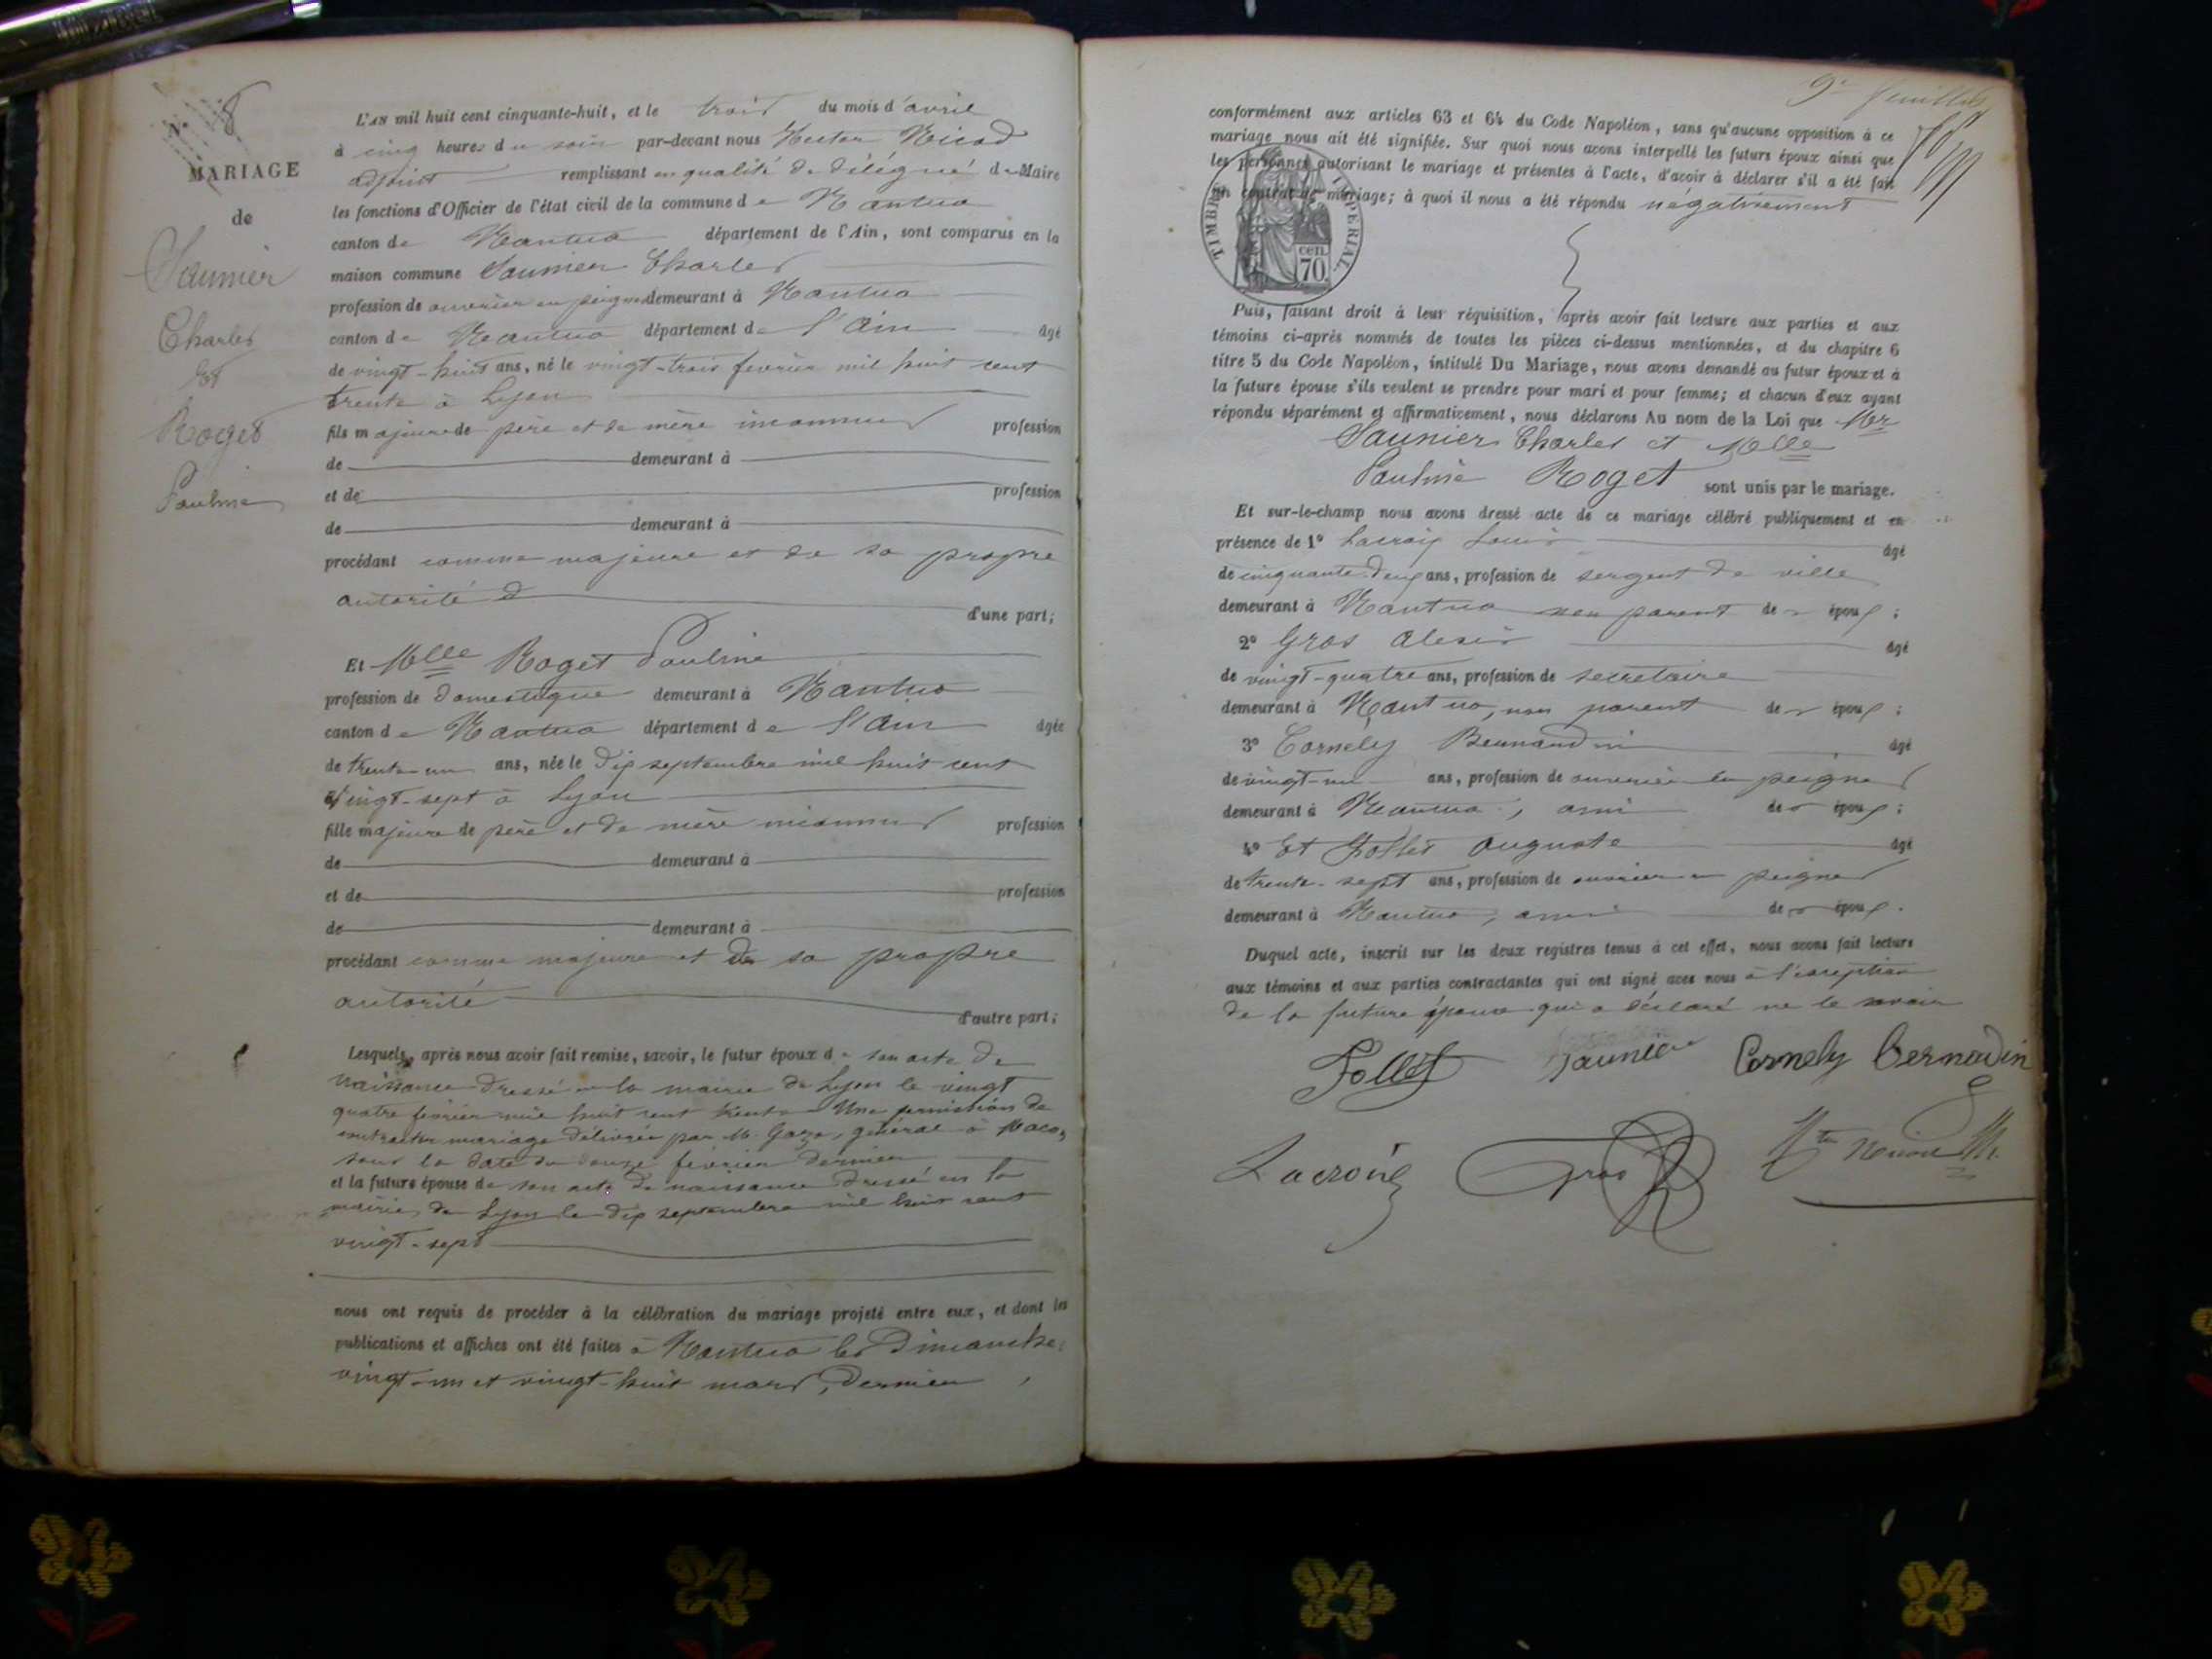 N° 8
MARIAGE
de
Saunier
Charles
Et
Roget
Pauline
L'AN mil huit cent cinquante-huit, et le trois du mois d'avril
à cinq heures du soir par-devant nous Hector Nicod
adjoint remplissant en qualité de délégué du Maire
les fonctions d'Officier de l'état civil de la commune de Nantua
canton de Nantua département de l'Ain, sont comparus en la
maison commune Saunier Charles
profession de ouvrier en peignes demeurant à Nantua
canton de Nantua département de l'Ain âgé
de vingt-huit ans, né le vingt-trois fevrier mil huit cent
trente à Lyon
fils majeur de père et de mère inconnus profession
de demeurant à
et de profession
de demeurant à
procédant comme majeure et de sa propre
autorité d
d'une part;
Et Melle Roget Pauline
profession de domestique demeurant à Nantua
canton de Nantua département de l'Ain âgée
de trente-un ans, née le dix septembre mil huit cent
vingt-sept à Lyon
fille majeure de père et de mère inconnus profession
de demeurant à
et de profession
de demeurant à
procédant comme majeure et de sa propre
autorité
d'autre part;
Lesquels, après nous avoir fait remise, savoir, le futur époux de son acte de
naissance dressé en la mairie de Lyon le vingt
quatre février mil huit cent trente Une permission de
contracter mariage délivrée par M. général à Macon
sous la date du douze février dernier
et la future épouse de son acte de naissance dressé en la
mairie de Lyon le dix septembre mil huit cent
vingt-sept
nous ont requis de procéder à la célébration du mariage projeté entre eux, et dont les
publications et affiches ont été faites à Nantua les Dimanche
vingt-un et vingt-huit mars, dernier,
9e feuillet
conformément aux articles 63 et 64 du Code Napoléon, sans qu'aucune opposition à ce
mariage nous ait été signifiée. Sur quoi nous avons interpellé les futurs époux ainsi que
les personnes autorisant le mariage et présentes à l'acte, d'avoir à déclarer s'il a été fait
un contrat de mariage; à quoi il nous a été répondu négativement
TIMBRE IMPERIAL.
cen.
70
Puis, faisant droit à leur réquisition, après avoir fait lecture aux parties et aux
témoins ci-après nommés de toutes les pièces ci-dessus mentionnées, et du chapitre 6
titre 5 du Code Napoléon, intitulé Du Mariage, nous avons demandé au futur époux et à
la future épouse s'ils veulent se prendre pour mari et pour femme; et chacun d'eux ayant
répondu séparément et affirmativement, nous déclarons Au nom de la Loi que Mr
Saunier Charles et Melle
Pauline Roget sont unis par le mariage.
Et sur-le-champ nous avons dressé acte de ce mariage célébré publiquement et en
présence de 1° Lacroix Louis âgé
de cinquante-deux ans, profession de sergent de ville
demeurant à Nantua non parent des époux;
2° Gros Alexis âgé
de vingt-quatre ans, profession de secretaire
demeurant à Nantua, non parent des époux;
3° Cornely Bernardin âgé
de vingt-un ans, profession de ouvrier en peignes
demeurant à Nantua, ami des époux;
4° Et Follet Auguste âgé
de trente-sept ans, profession de ouvrier en peignes
demeurant à Nantua, ami des époux.
Duquel acte, inscrit sur les deux registres tenus à cet effet, nous avons fait lecture
aux témoins et aux parties contractantes qui ont signé avec nous à l'exeption
de la future épouse qui a déclaré ne le savoir
Follet Saunier Cornely bernadin
Lacroix Gros Nicod